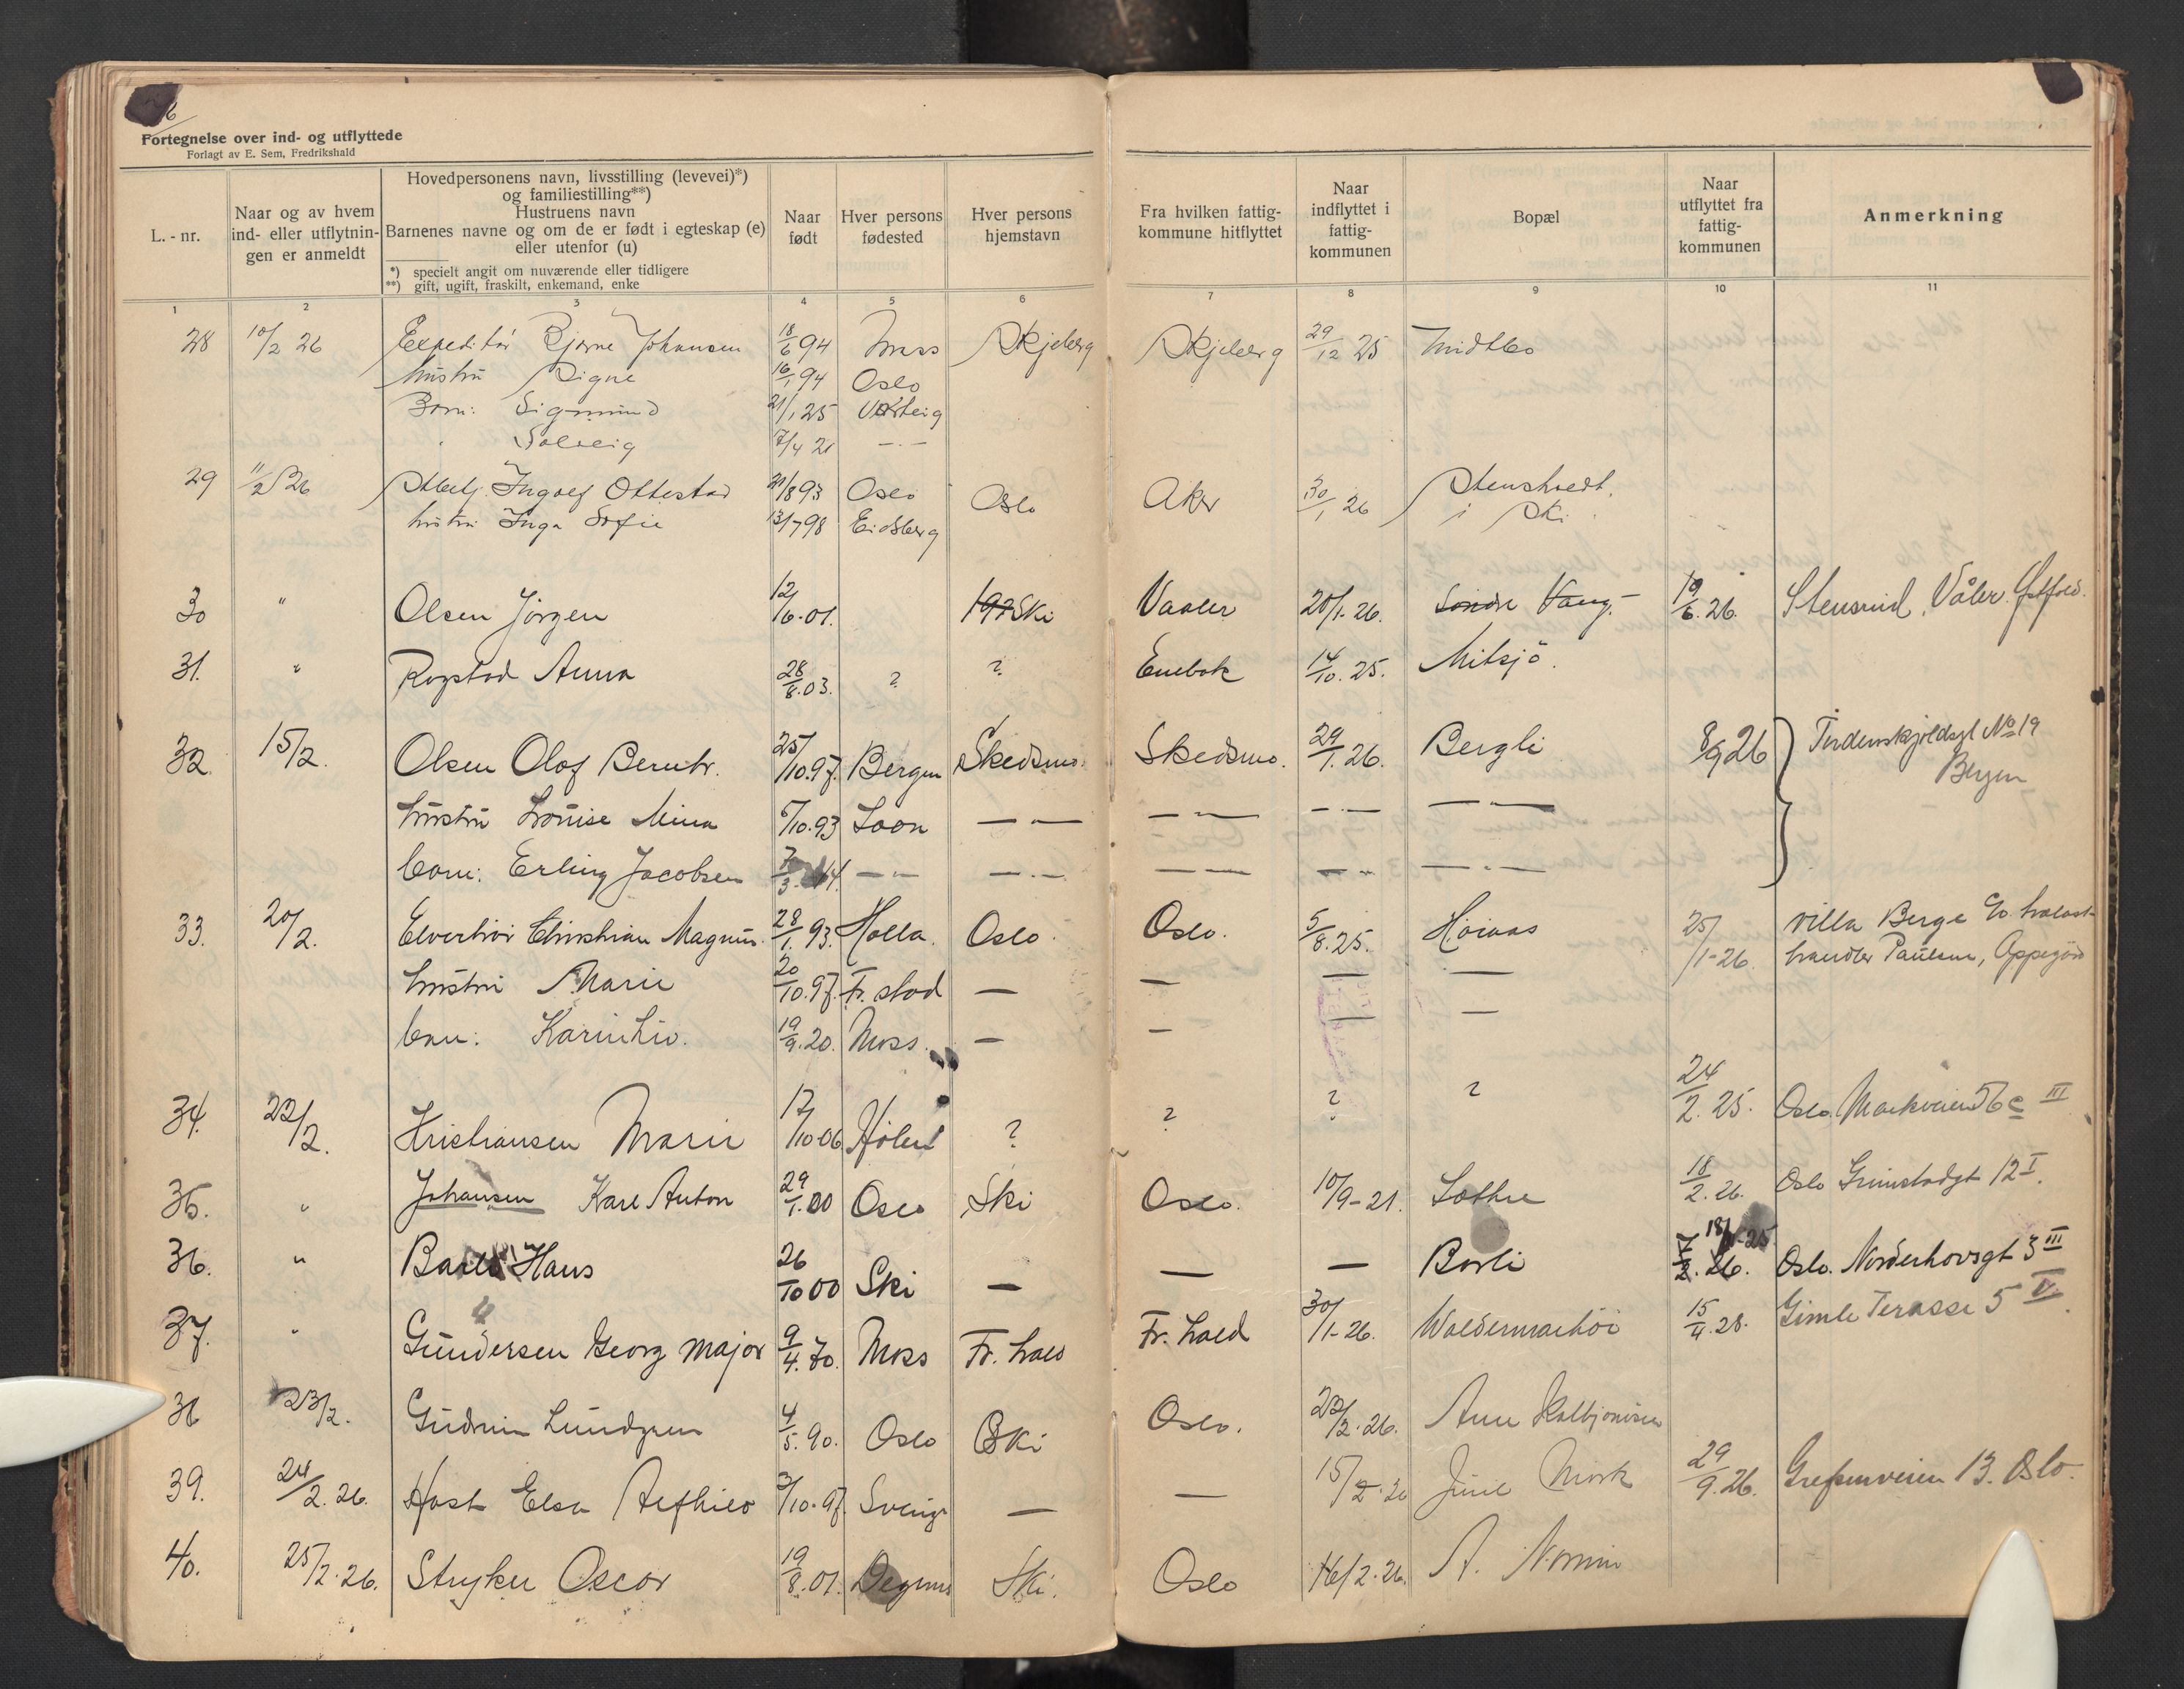 6
Fortegnelse over ind- og utflyttede
Forlagt av E. Sem, Fredrikshald
L. - nr.
Naar og av hvem
ind- eller utflytnin-
gen er anmeldt
Hovedpersonens navn, livsstilling (levevei)*)
og familiestilling**)
Hustruens navn
Barnenes navne og om de er født i egteskap (e)
eller utenfor (u)
*) specielt angit om nuværende eller tidligere
**) gift, ugift, fraskilt, enkemand, enke
Naar
født
Hver persons
fødested
Hver persons
hjemstavn
Fra hvilken fattig-
kommune hitflyttet
Naar
indflyttet i
fattig-
kommunen
Bopæl
Naar
utflyttet fra
fattig-
kommunen
Anmerkning
1 2 3 4 5 6 7 8 9 10 11
28 10/2 26 Expeditør Bjarne Johansen 18/6 94 Moss Skjeberg Skjeberg 29/12 25 Midtbo
hustru Signe 16/1 94 Oslo
Barn: Sigmund 21/1 25 Varteig
" Solveig 7/4 21 — " —
29 11/2 26 Ingolf Ottestad 21/8 93 Oslo Oslo Aker 30/1 26 Stenstvedt
hustru Inga Sofie 13/7 98 Eidsberg i Ski
30 " Olsen Jörgen 12/6.01. Ski Vaaler 20/1.26. Söndre Vang. 19/6.26. Stensrud, Våler. Østfold.
31. " Rogstad Anna 28/8.03. ? ? Enebak 14/10.25. Mitsjö.
32. 15/2. Olsen Olaf Berntr. 25/10.97. Bergen Skedsmo. Skedsmo. 29/1.26. Bergli 8/9 26 Tordenskjoldsgt No 19
Bergen
hustru Louise Mina 5/10.93 — " — — " — — " — — " —
barn: Erling Jacobsen 7/3. 14. — " — — " — — " — — " — — " —
33. 20/2. Elverhöi Christian Magnus. 28/1.93. Holla. Oslo. Oslo. 5/8.25. Höiaas 25/1-26. Villa Berge c/o trælast-
handler Paulsen, Oppegård
hustru Marie 20/10.97. Fr.stad — — — —
barn: Karin Liv. 19/9.20. Moss. — — — —
34. 22/2. Kristiansen Marie 17/10 06 Hölen ? ? ? ? 24/2.25. Oslo. Markveien 56 c III
35. " Johansen Karl Anton 29/1.00 Oslo Ski Oslo. 10/9-21. Løthe 18/2.26. Oslo Grimstadgt 12 I.
36. " Hans 26/10 00 Ski — — — Borli 7/2.26. Oslo. Norderhovsgt 3 III
37. " Gundersen Georg Major 9/4.70. Moss Fr. hald Fr. hald 30/1-26. Waldemarhöi 15/4.28. Gimle Terasse 5 V.
38 23/2. Gudrun Lundgren 4/5.90. Oslo Ski Oslo. 22/2.26.
39. 24/2.26. Host Elsa 3/10.97. Sverige — — 15/2.26 Juul Mork 29/9.26. Grefsenveien 13. Oslo.
40. 25/2.26. Stryker Oscar 19/8.01. Ski. Oslo 16/2.26. A.